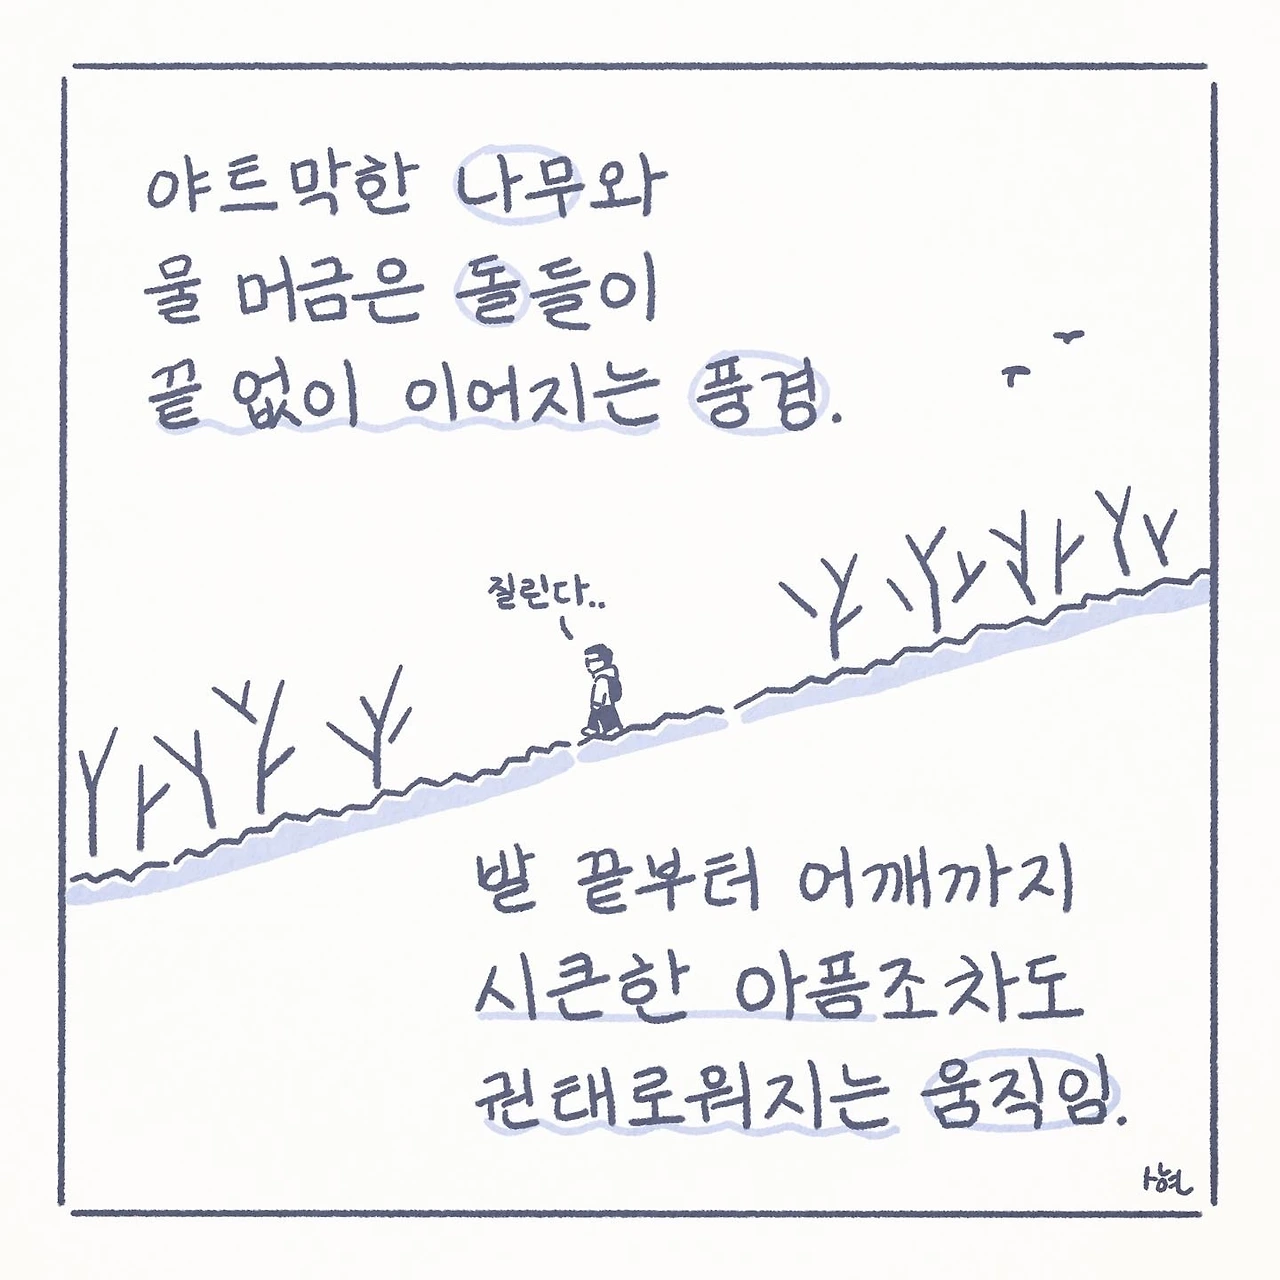 야트막한 나무와
물 머금은 돌들이
끝 없이 이어지는 풍경.
질린다..
발 끝부터 어깨까지
시큰한 아픔조차도
권태로워지는 움직임.